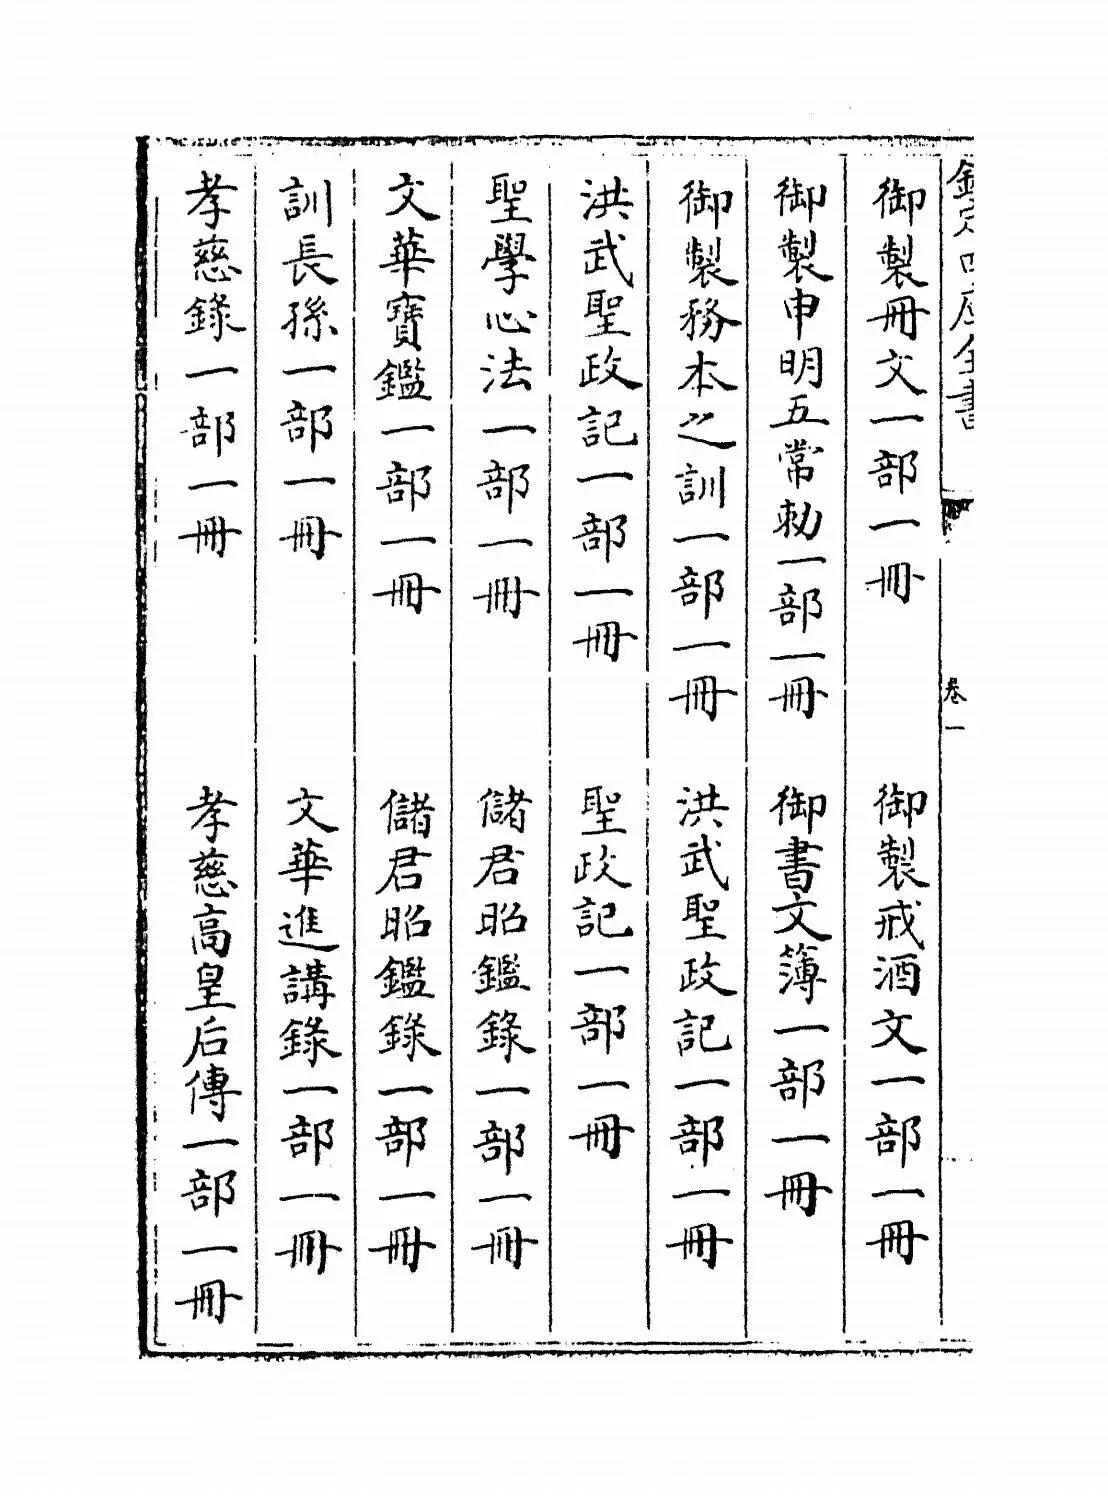 欽定四庫全書
卷一
御製冊文一部一冊　御製戒酒文一部一冊
御製申明五常勅一部一冊　御書文簿一部一冊
御製務本之訓一部一冊　洪武聖政記一部一冊
洪武聖政記一部一冊　聖政記一部一冊
聖學心法一部一冊　儲君昭鑑錄一部一冊
文華寶鑑一部一冊　儲君昭鑑錄一部一冊
訓長孫一部一冊　文華進講錄一部一冊
孝慈錄一部一冊　孝慈高皇后傳一部一冊